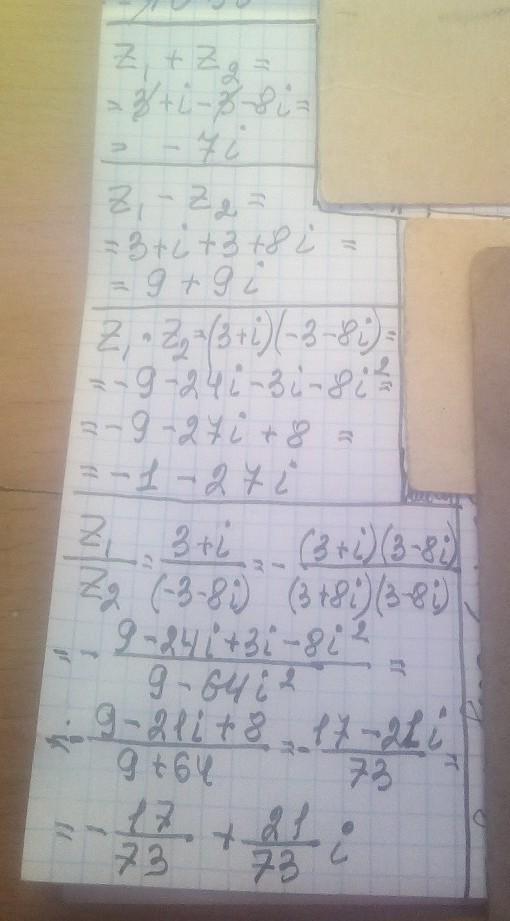 Z₁ + Z₂ =
= 3 + i - 3 - 8i =
= - 7i
Z₁ - Z₂ =
= 3 + i + 3 + 8i =
= 9 + 9i
Z₁ · Z₂ = (3+i)(-3-8i) =
= -9 - 24i - 3i - 8i² =
= -9 - 27i + 8 =
= -1 - 27i
Z₁/Z₂ = (3+i)/(-3-8i) = - (3+i)(3-8i)/(3+8i)(3-8i)
= - (9-24i+3i-8i²)/(9-64i²) =
= - (9-21i+8)/(9+64) = - (17-21i)/73 =
= - 17/73 + 21/73 i